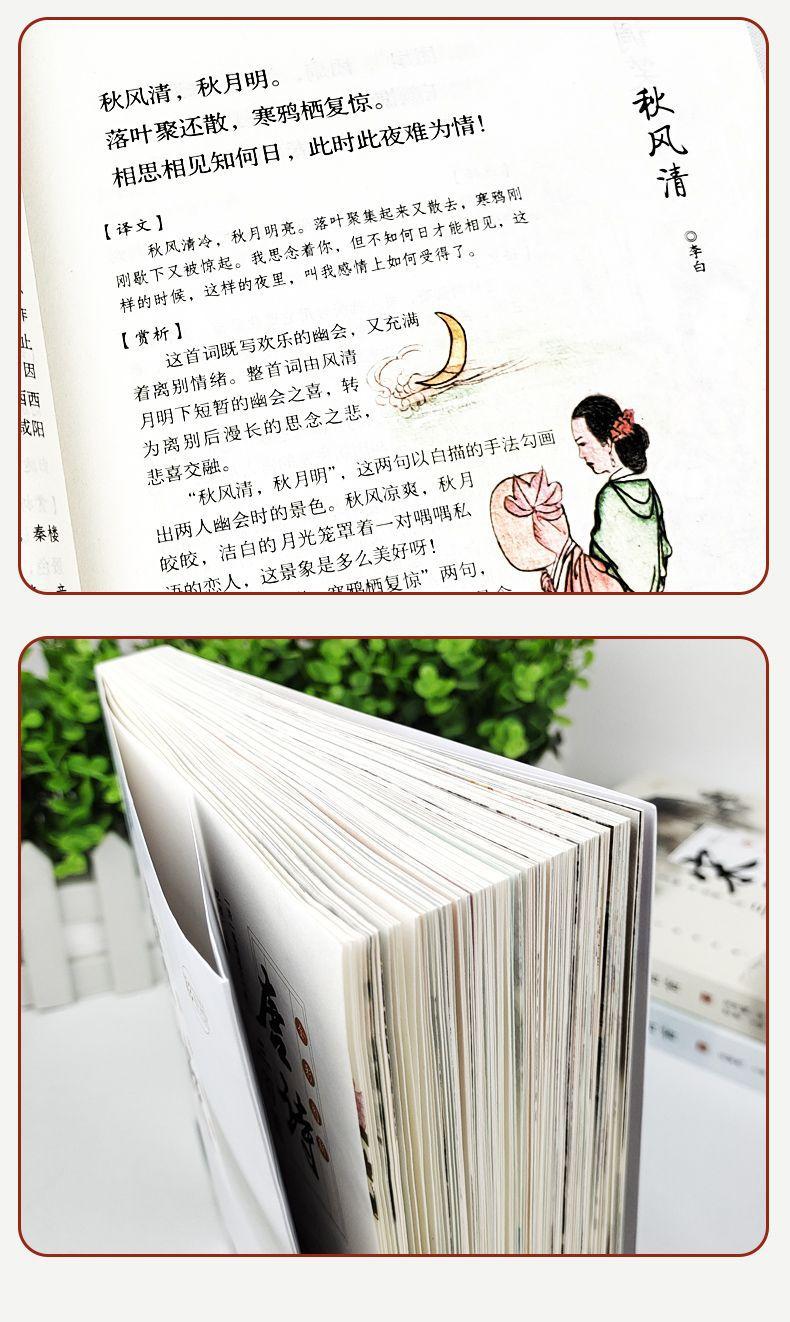 秋风清
◎李白
秋风清，秋月明。
落叶聚还散，寒鸦栖复惊。
相思相见知何日，此时此夜难为情！
【译文】
秋风清冷，秋月明亮。落叶聚集起来又散去，寒鸦刚
刚歇下又被惊起。我思念着你，但不知何日才能相见，这
样的时候，这样的夜里，叫我感情上如何受得了。
【赏析】
这首词既写欢乐的幽会，又充满
着离别情绪。整首词由风清
月明下短暂的幽会之喜，转
为离别后漫长的思念之悲，
悲喜交融。
“秋风清，秋月明”，这两句以白描的手法勾画
出两人幽会时的景色。秋风凉爽，秋月
皎皎，洁白的月光笼罩着一对喁喁私
语的恋人，这景象是多么美好呀！
寒鸦栖复惊”两句，
止
因
西
咸阳
秦楼
唐诗
宋